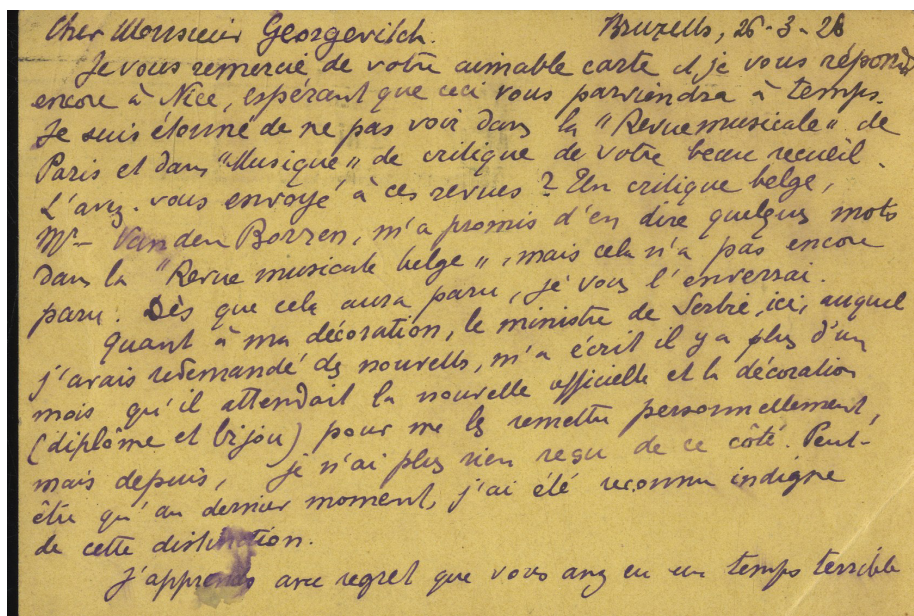 Cher Monsieur Georgevitch. Bruxelles, 26-3-28
Je vous remercie de votre aimable carte et je vous réponds
encore à Nice, espérant que ceci vous parviendra à temps.
Je suis étonné de ne pas voir dans la "Revue musicale" de
Paris et dans "Musique" de critique de votre beau recueil.
L'avez-vous envoyé à ces revues ? Un critique belge,
Mr Van den Borren, m'a promis d'en dire quelques mots
dans la "Revue musicale belge", mais cela n'a pas encore
paru. Dès que cela aura paru, je vous l'enverrai.
Quant à ma décoration, le ministre de Serbie, ici, auquel
j'avais redemandé des nouvelles, m'a écrit il y a plus d'un
mois qu'il attendait la nouvelle officielle et la décoration
(diplôme et bijou) pour me les remettre personnellement,
mais depuis, je n'ai plus rien reçu de ce côté. Peut-
être qu'au dernier moment, j'ai été reconnu indigne
de cette distinction.
J'apprends avec regret que vous avez eu un temps terrible